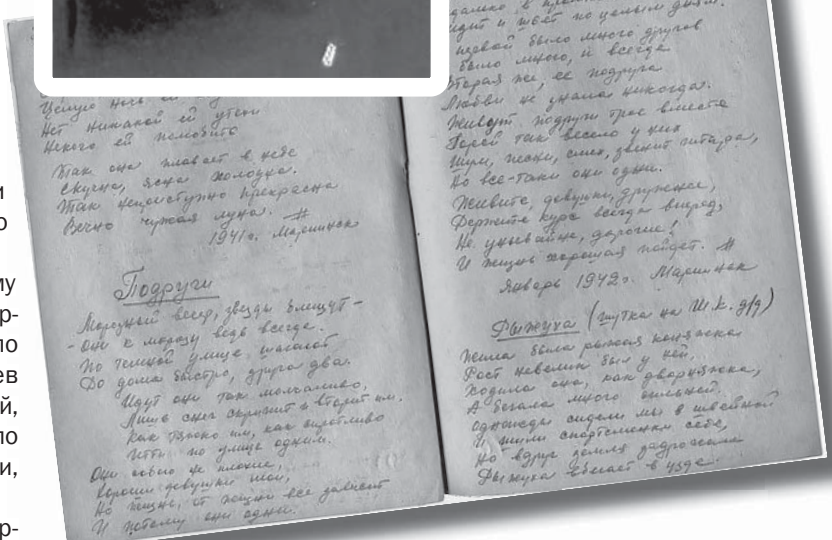 и
о
му
р-
ло
ев
й,
ло
и,
р-
Целую ночь ей
Нет никакой ей утехи
Некого ей полюбить
Так она плавает в небе
Скучна, ясна холодна.
Так неприступно прекрасна
Вечно чужая луна. #
1941 г. Мариинск
Подруги
Морозный вечер, звезды блещут –
– Они к морозу ведь всегда.
По темной улице шагают
До дома быстро, друга два.
Идут они так молчаливо,
Лишь снег скрипит и вторит им.
Как тяжко им, как сиротливо
Идти по улице одним.
Они собою не плохие,
хороши девушки мои,
Но жизнь, от жизни все зависит
И потому они одни.
далеко в
и ждёт по целым дням.
первой было много другов
было много, и всегда
Вторая же, ее подруга
Любви не знала никогда.
Живут подруги трое вместе
Порой так весело у них
Шум, песни, смех, звенит гитара,
Но все-таки они одни.
Живите, девушки, дружнее,
Держите курс всегда вперед,
Не унывайте, дорогие!
И жизнь хорошая пойдет. #
Январь 1942 г. Мариинск
Рыжуха (шутка на Ш.К. д/д)
Жила была рыжая коняжка
Рост невелик был у ней,
Ходила она, как дворняжка,
А бегала много сильней.
Однажды сидели мы в швейной
И шили спортсменкам себе,
Но вдруг земля задрожала
Рыжуха вбегает в узде.